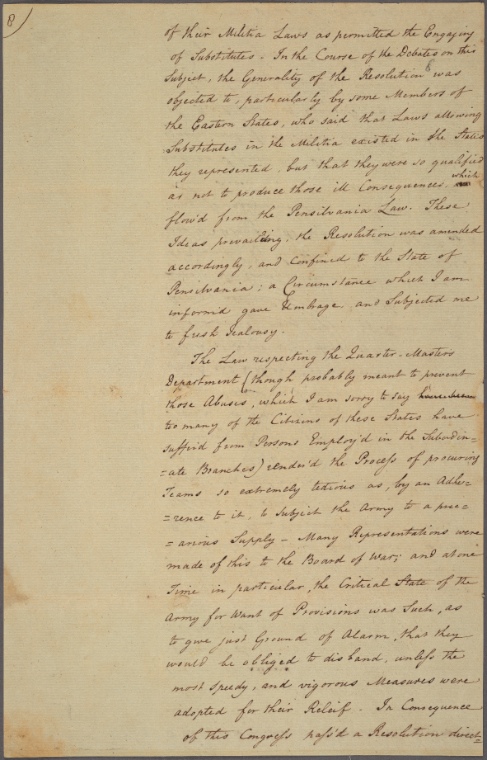 8
of their Militia Laws as permitted the Engaging
of Substitutes. In the Course of the Debates on this
Subject, the Generality of the Resolution was
objected to, particularly by some Members of
the Eastern States, who said that Laws allowing
Substitutes in the Militia existed in the States
they represented, but that they were so qualified
as not to produce those ill Consequences which
flow'd from the Pensilvania Law. These
Ideas prevailing, the Resolution was amended
accordingly, and confined to the State of
Pensilvania; a Circumstance which I am
inform'd gave Umbrage, and Subjected me
to fresh Jealousy.
The Law respecting the Quarter-Masters
Department (though probably meant to prevent
those Abuses, which I am sorry to say
too many of the Citizens of these States have
suffer'd from Persons Employ'd in the Subordin=
=ate Branches) render'd the Process of procuring
Teams so extremely tedious as, by an Adhe=
=rence to it, to Subject the Army to a prec=
=arious Supply - Many Representations were
made of this to the Board of War; and at one
Time in particular, the Critical State of the
Army for Want of Provisions was Such, as
to give just Ground of Alarm, that they
would be obliged to disband, unless the
most speedy, and vigorous Measures were
adopted for their Releif. In Consequence
of this Congress pass'd a Resolution direct=